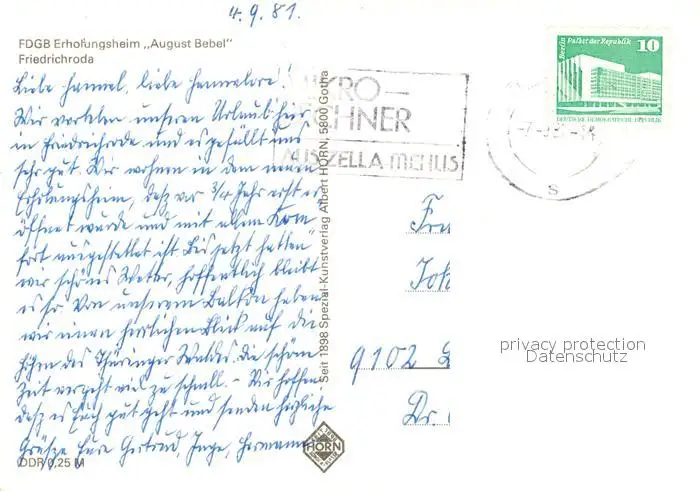 4.9.81.
FDGB Erholungsheim „August Bebel"
Friedrichroda
Liebe Hannel, liebe Hannelore!
Wir verleben unseren Urlaub hier
in Friedrichroda und es gefällt uns
sehr gut. Wir wohnen in dem neuen
Erholungsheim, daß vor 3/4 Jahr erst er
öffnet wurde und mit allem Kom
fort ausgestattet ist. Bis jetzt hatten
wir schönes Wetter, hoffentlich bleibt
es so. Von unserem Balkon haben
wir einen herrlichen Blick auf die
Höhen des Thüringer Waldes. Die schöne
Zeit vergeht viel zu schnell. - Wir hoffen
daß es Euch gut geht und senden herzliche
Grüße Eure Gertrud, Inge, Hermann
DDR 0,25 M
Seit 1898 Spezial-Kunstverlag Albert HORN, 5800 Gotha
HORN
MIKRO-
RECHNER
AUS ZELLA MEHLIS
Berlin Palast der Republik
10
DEUTSCHE DEMOKRATISCHE REPUBLIK
s
9102
Dr.
privacy protection
Datenschutz